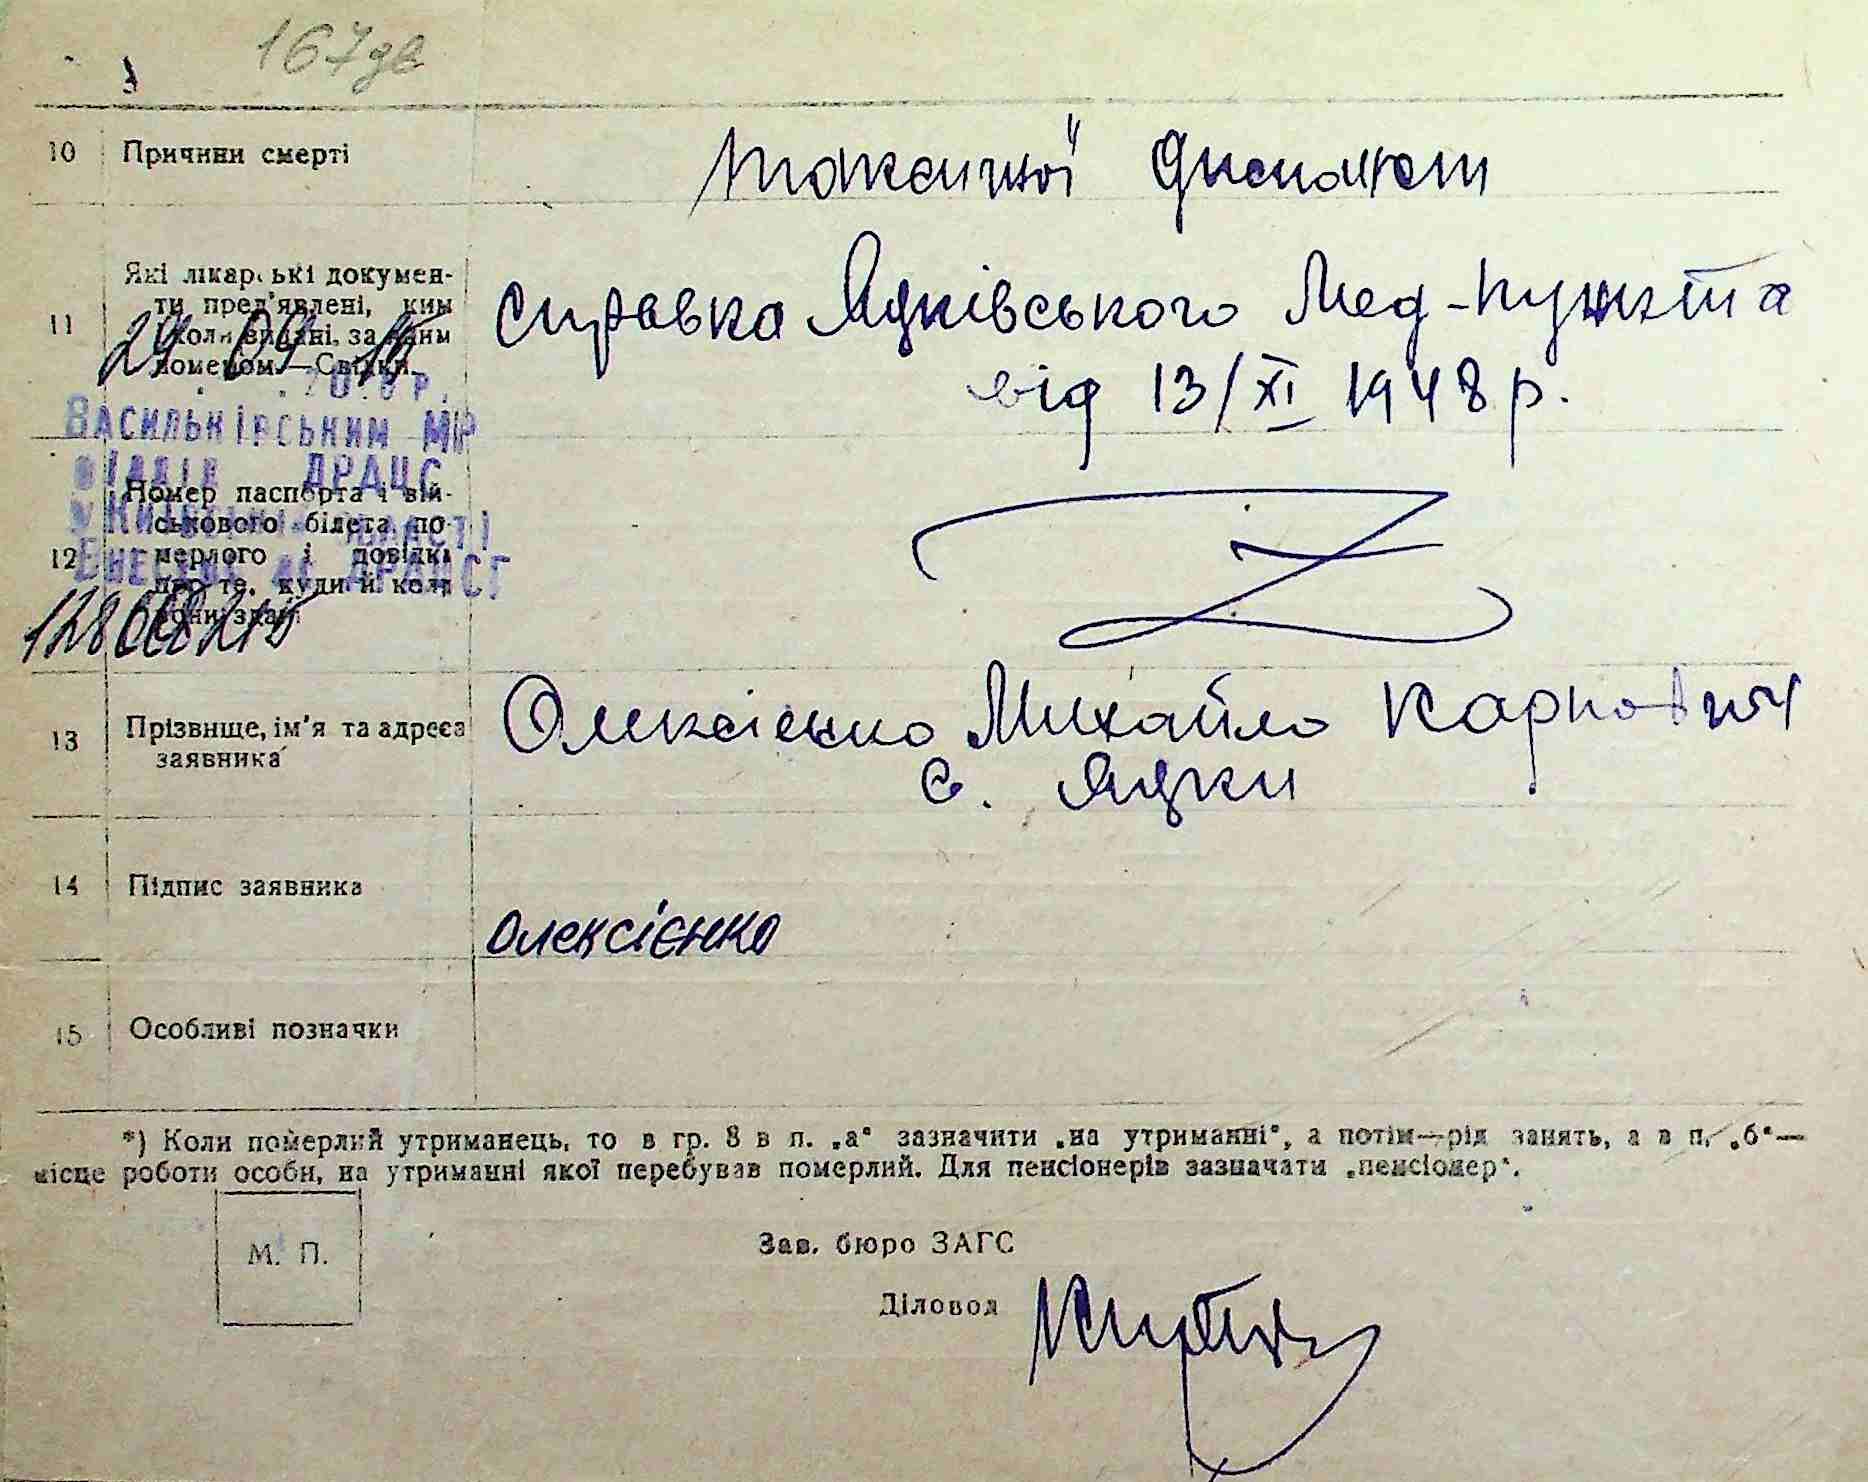 167зв
10 Причини смерті
токсичної диспепсії
11 Які лікарські докумен-
ти пред'явлені, ким
і коли видані, за яким
номером.—Свідки.
справка Яцківського Мед-пункта
від 13/XI 1948 р.
24 09 16
ВАСИЛЬКІВСЬКИМ МР
ВІДДІЛ ДРАЦС
12 Номер паспорта і вій-
ськового білета по-
мерлого і довідка
про те, куди й коли
вони здані
13 Прізвище, ім'я та адреса
заявника
Олексієнко Михайло Карпович
с. Яцки
14 Підпис заявника
Олексієнко
15 Особливі позначки
*) Коли померлий утриманець, то в гр. 8 в п. „а“ зазначити „на утриманні“, а потім—рід занять, а в п. „б“—
місце роботи особи, на утриманні якої перебував померлий. Для пенсіонерів зазначати „пенсіонер“.
М. П.
Зав. бюро ЗАГС
Діловод